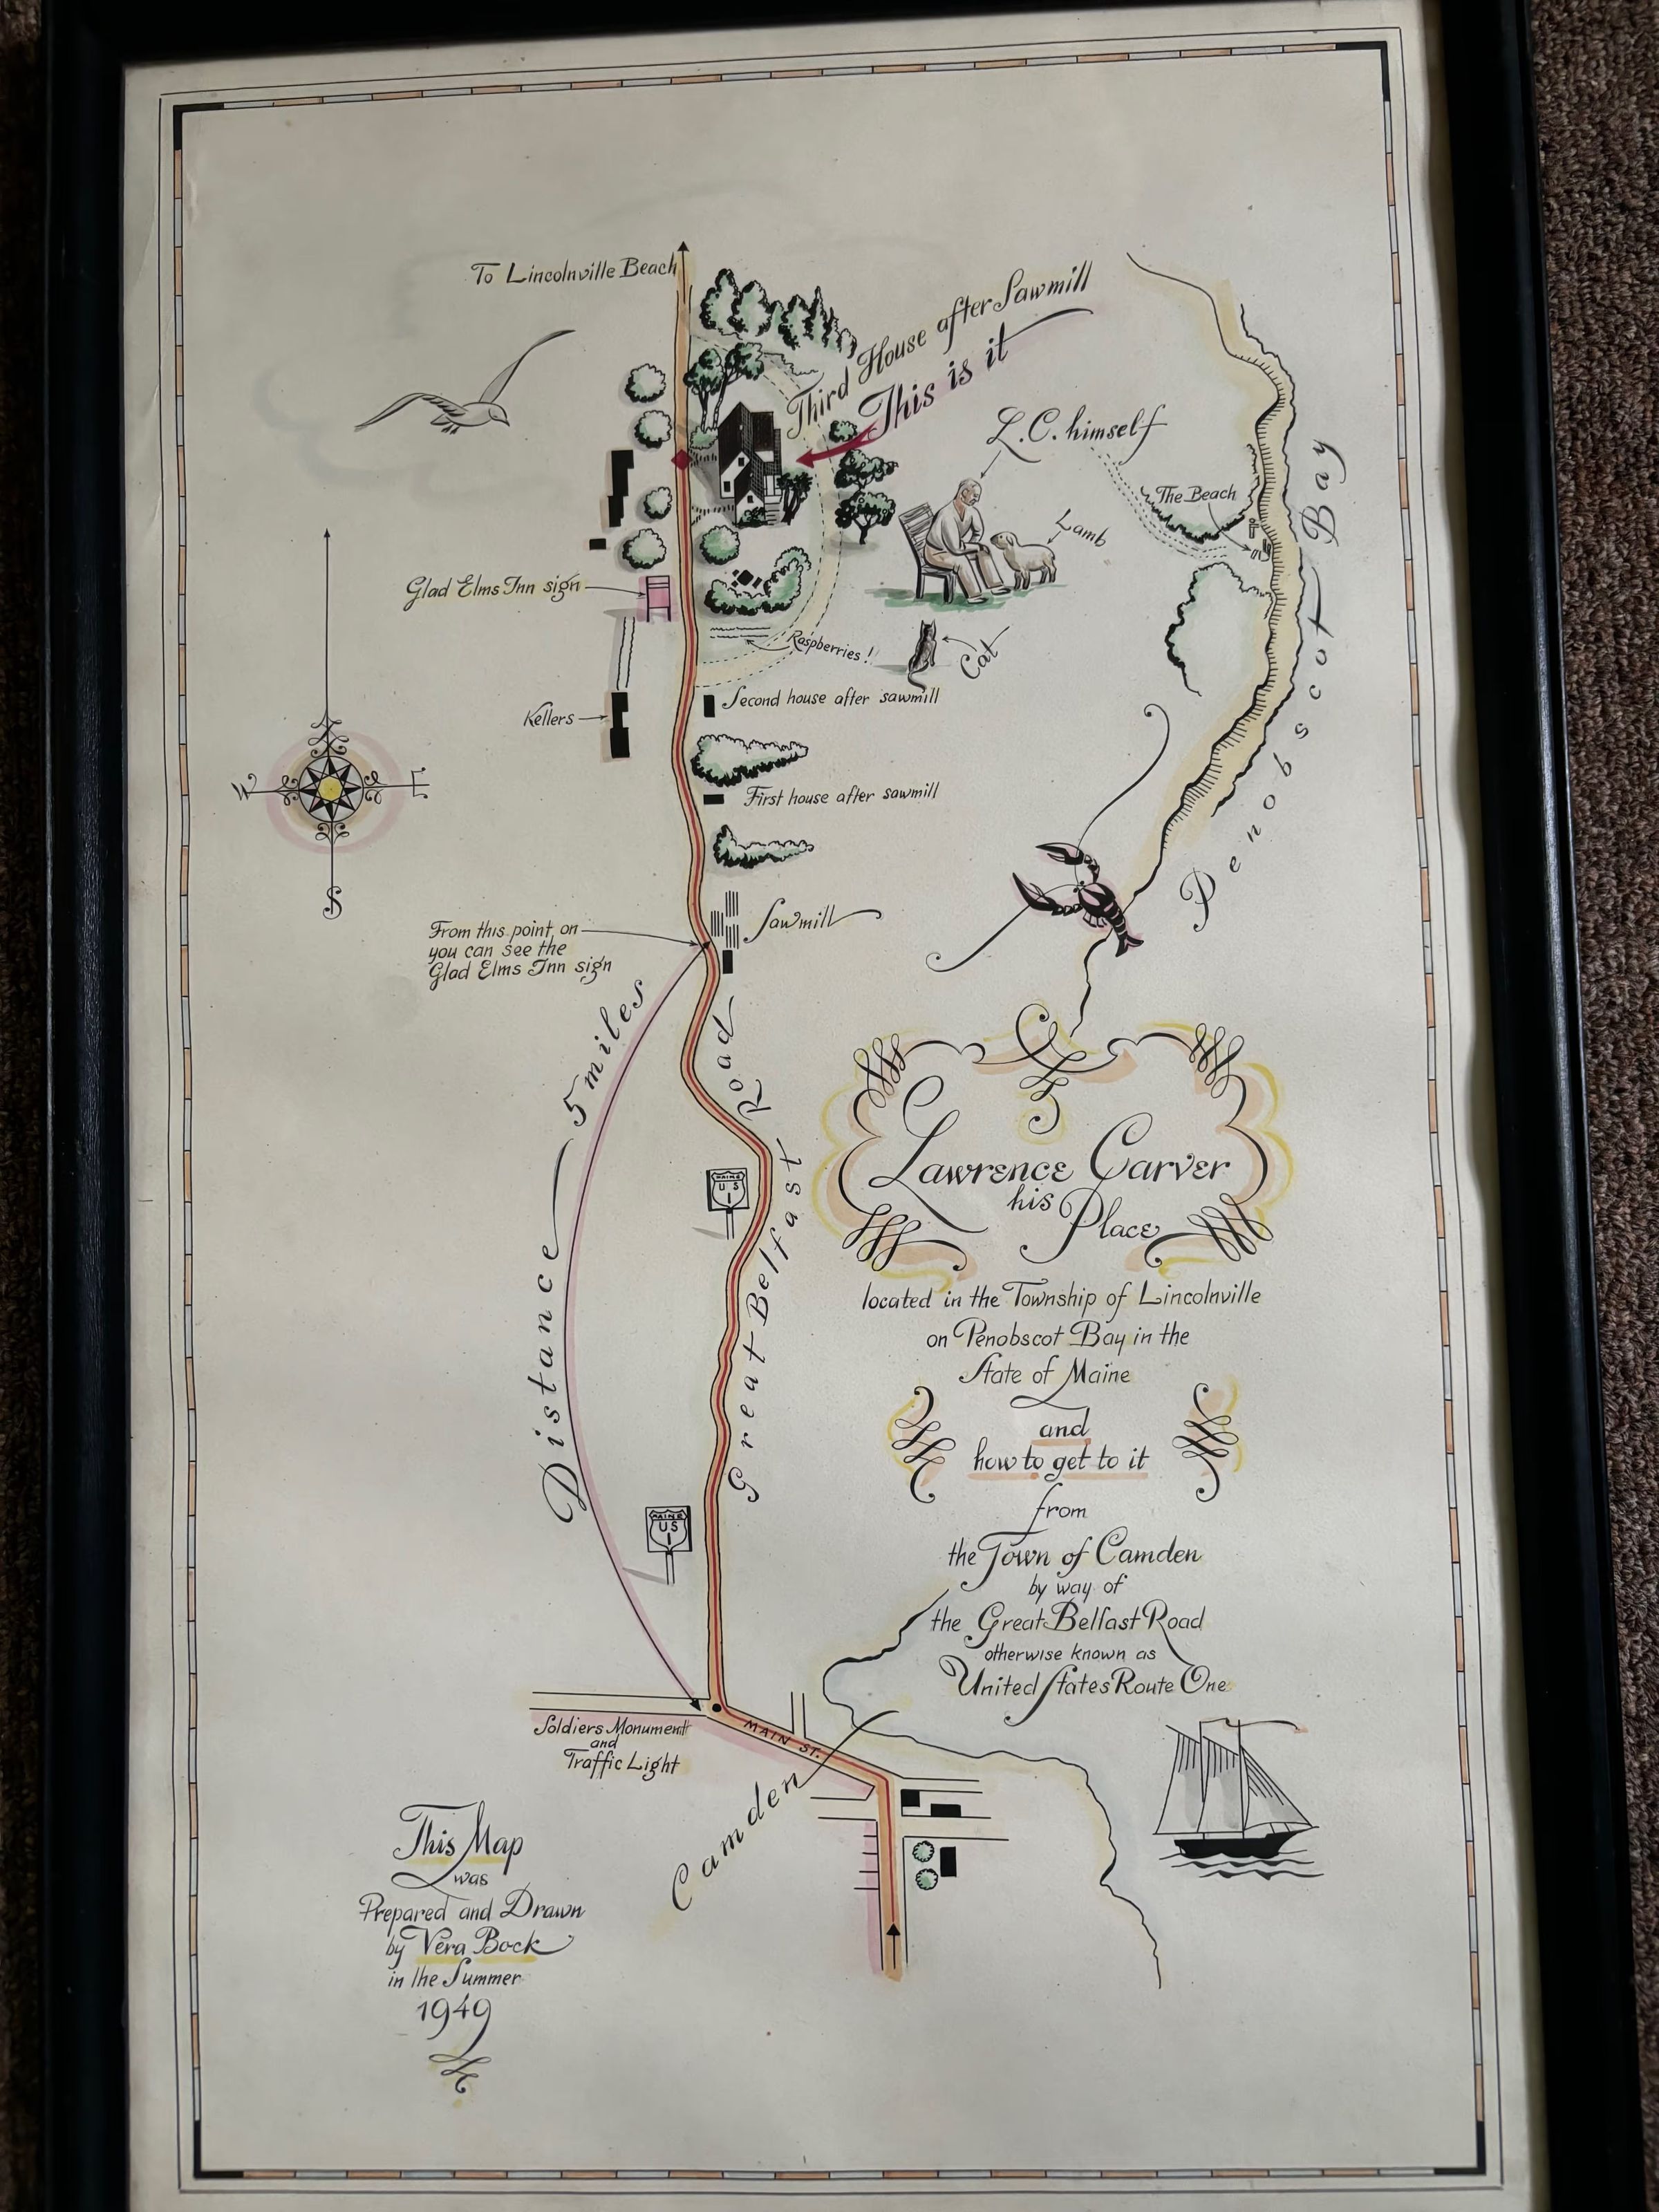 To Lincolnville Beach
Third House after Sawmill
This is it
L.C. himself
The Beach
Lamb
Penobscot Bay
Glad Elms Inn sign
Raspberries!
Cat
Second house after sawmill
Kellers
W E
S
First house after sawmill
Sawmill
From this point on
you can see the
Glad Elms Inn sign
Distance 5 miles
Great Belfast Road
MAINE
U S
1
Lawrence Carver
his
Place
located in the Township of Lincolnville
on Penobscot Bay in the
State of Maine
and
how to get to it
from
the Town of Camden
by way of
the Great Belfast Road
otherwise known as
United States Route One
MAINE
US
1
Soldiers Monument
and
Traffic Light
MAIN ST.
Camden
This Map
was
Prepared and Drawn
by Vera Bock
in the Summer
1949